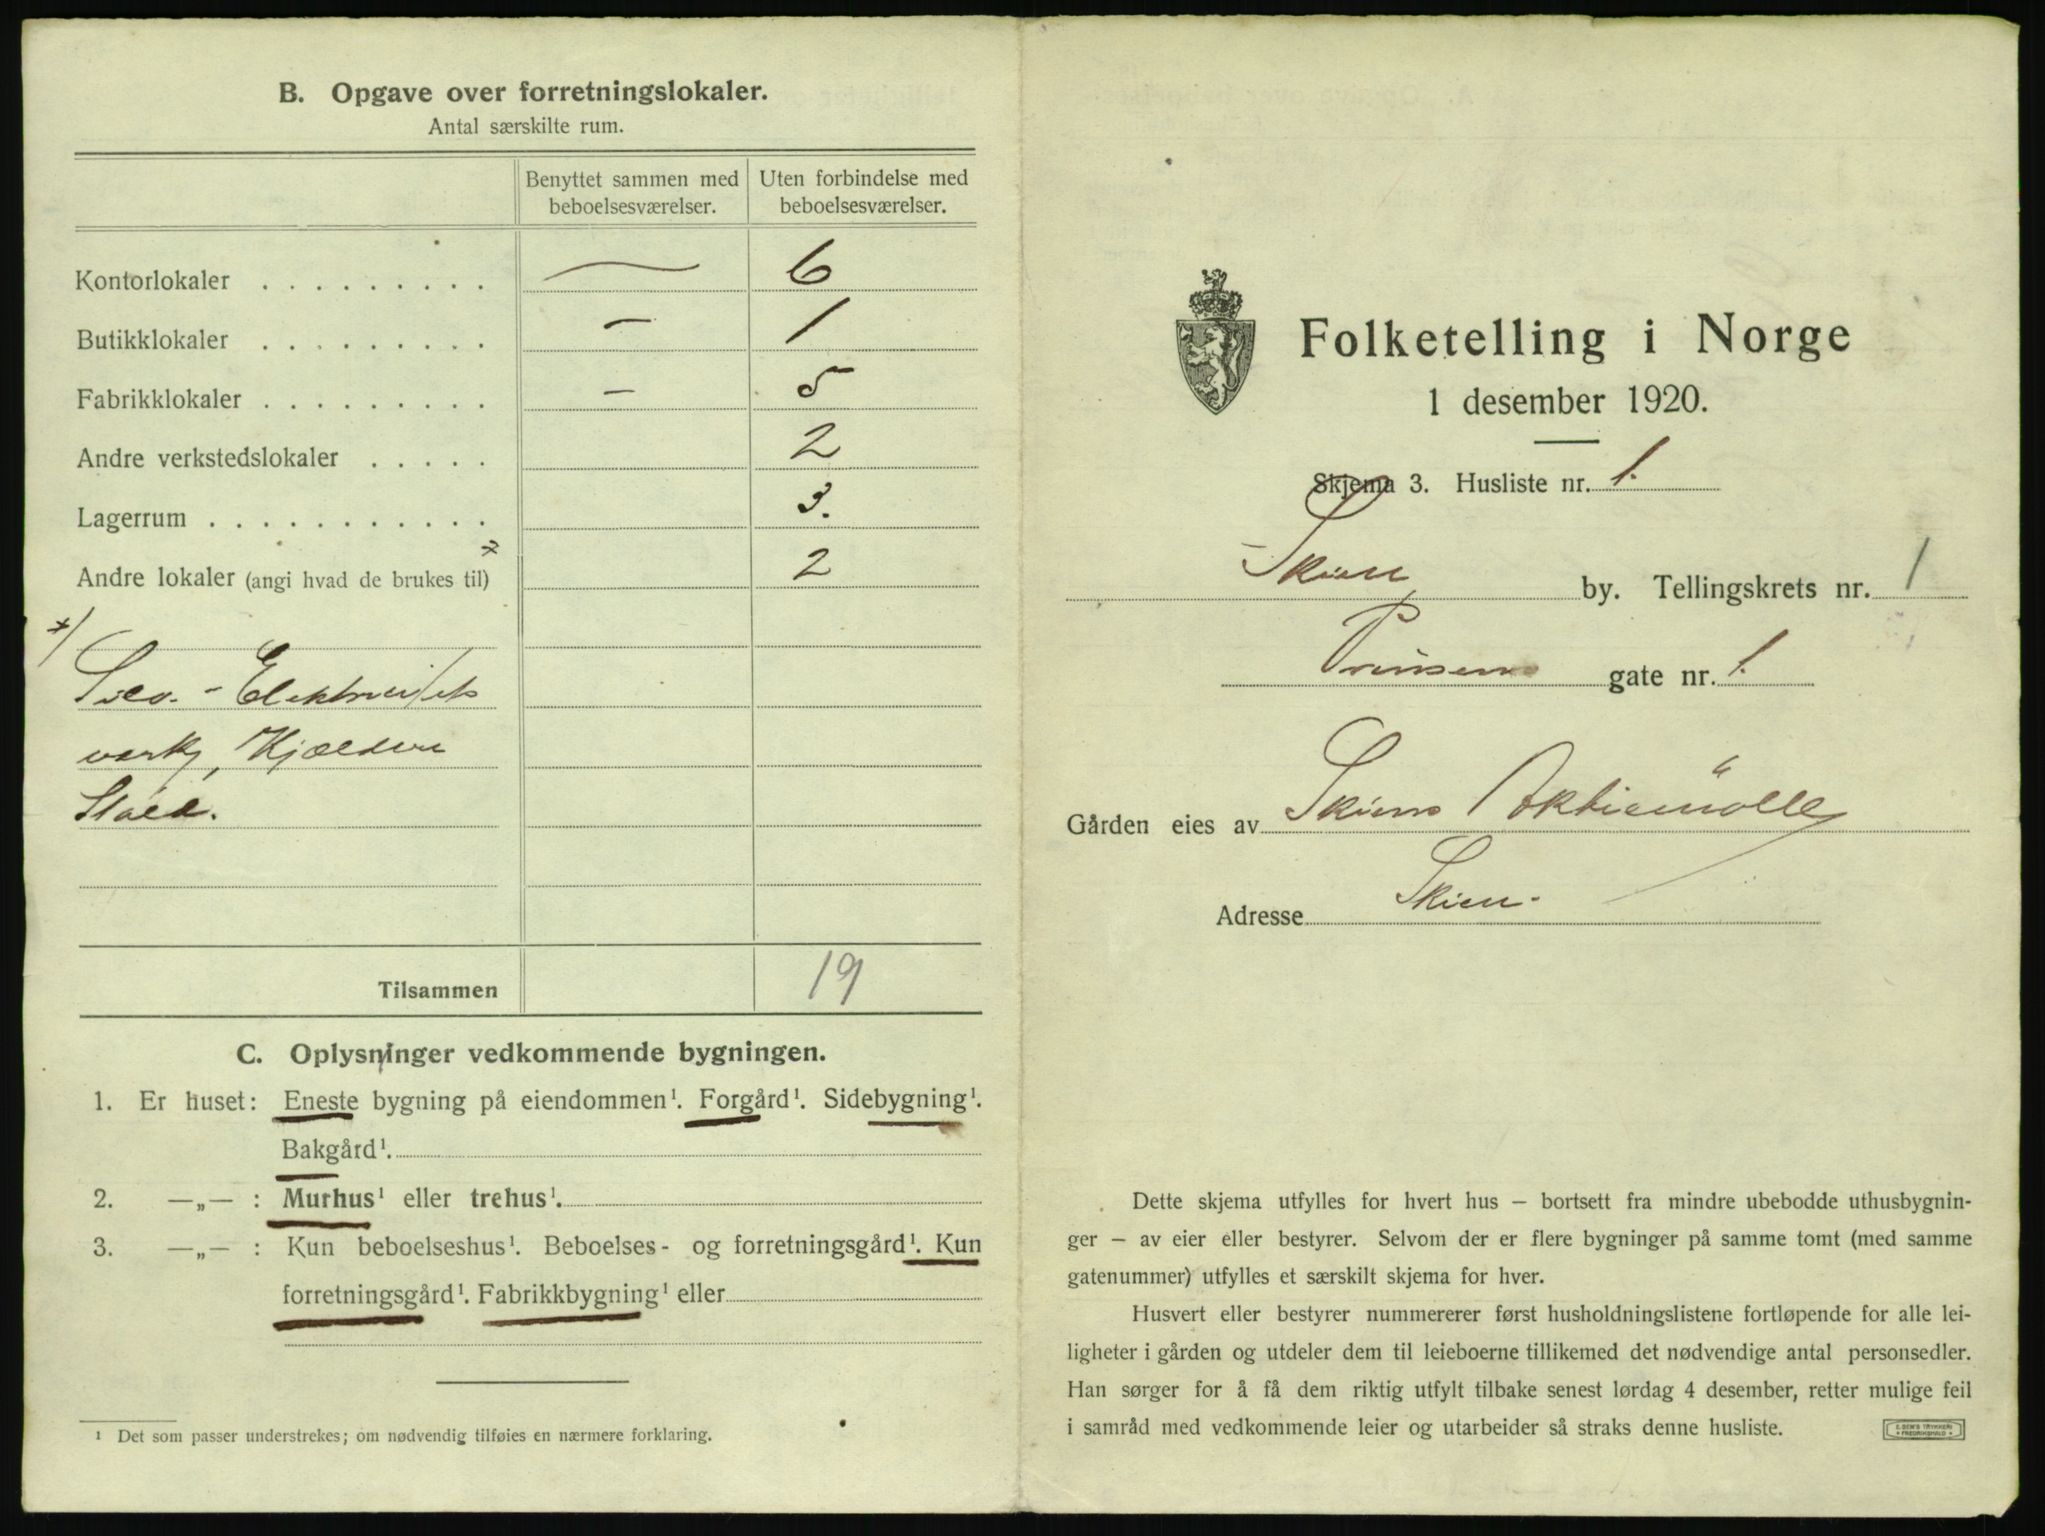 B. Opgave over forretningslokaler.
Antal særskilte rum.
Benyttet sammen med beboelsesværelser.
Uten forbindelse med beboelsesværelser.
Kontorlokaler . . . . . . . . . — 6
Butikklokaler . . . . . . . . . — 1
Fabrikklokaler . . . . . . . . . — 5
Andre verkstedslokaler . . . . . 2
Lagerrum . . . . . . . . . . . 3.
Andre lokaler (angi hvad de brukes til) 2
Silo. - Elektricitets
verk, Kjælder
Stald.
Tilsammen 19
C. Oplysninger vedkommende bygningen.
1. Er huset: Eneste bygning på eiendommen¹. Forgård¹. Sidebygning¹.
Bakgård¹.
2. —„— : Murhus¹ eller trehus¹.
3. —„— : Kun beboelseshus¹. Beboelses- og forretningsgård¹. Kun
forretningsgård¹. Fabrikkbygning¹ eller
¹ Det som passer understrekes; om nødvendig tilføies en nærmere forklaring.
Folketelling i Norge
1 desember 1920.
Skjema 3. Husliste nr. 1.
Skien by. Tellingskrets nr. 1
Prinsens gate nr. 1.
Gården eies av Skiens Aktiemölle
Adresse Skien.
Dette skjema utfylles for hvert hus – bortsett fra mindre ubebodde uthusbygnin-
ger – av eier eller bestyrer. Selvom der er flere bygninger på samme tomt (med samme
gatenummer) utfylles et særskilt skjema for hver.
Husvert eller bestyrer nummererer først husholdningslistene fortløpende for alle lei-
ligheter i gården og utdeler dem til leieboerne tillikemed det nødvendige antal personsedler.
Han sørger for å få dem riktig utfylt tilbake senest lørdag 4 desember, retter mulige feil
i samråd med vedkommende leier og utarbeider så straks denne husliste.